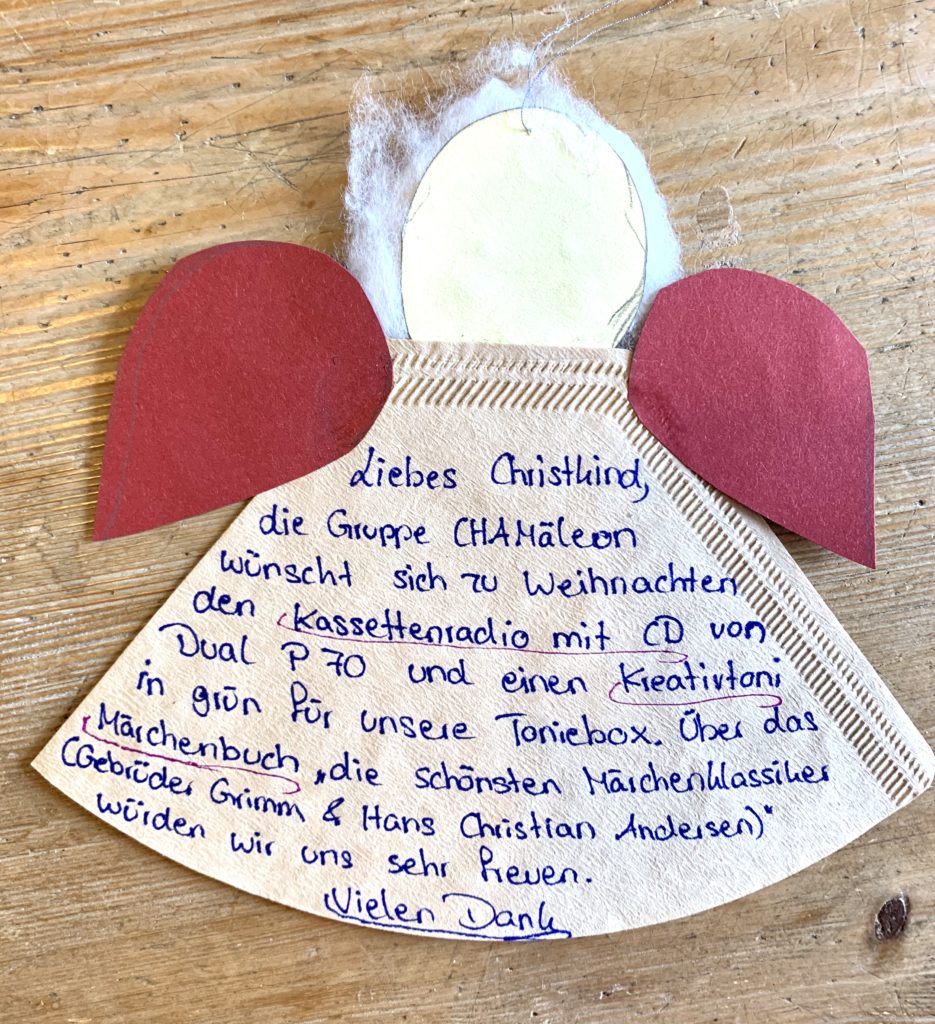 Liebes Christkind,
die Gruppe CHAMäleon
wünscht sich zu Weihnachten
den Kassettenradio mit CD von
Dual P 70 und einen Kreativtoni
in grün für unsere Toniebox. Über das
Märchenbuch „die schönsten Märchenklassiker
(Gebrüder Grimm & Hans Christian Andersen)"
würden wir uns sehr freuen.
Vielen Dank